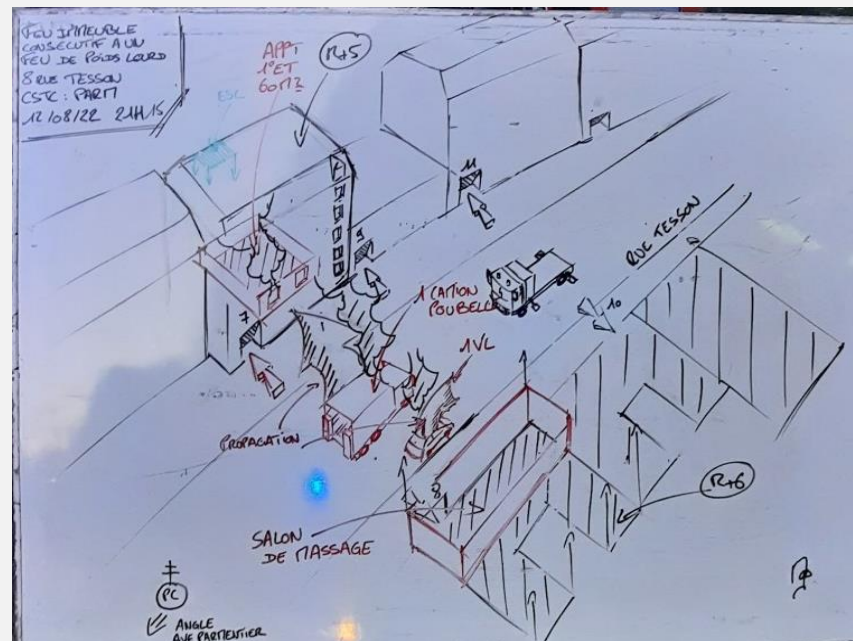 FEU IMMEUBLE
CONSECUTIF A UN
FEU DE POIDS LOURD
8 RUE TESSON
CSTC : PARM
12/08/22 21H15
ESC
APPT
1°ET
60M2
R+5
11
9
7
RUE TESSON
10
1 CAMION
POUBELLE
1VL
PROPAGATION
8
R+6
SALON
DE MASSAGE
PC
ANGLE
AVE PARMENTIER